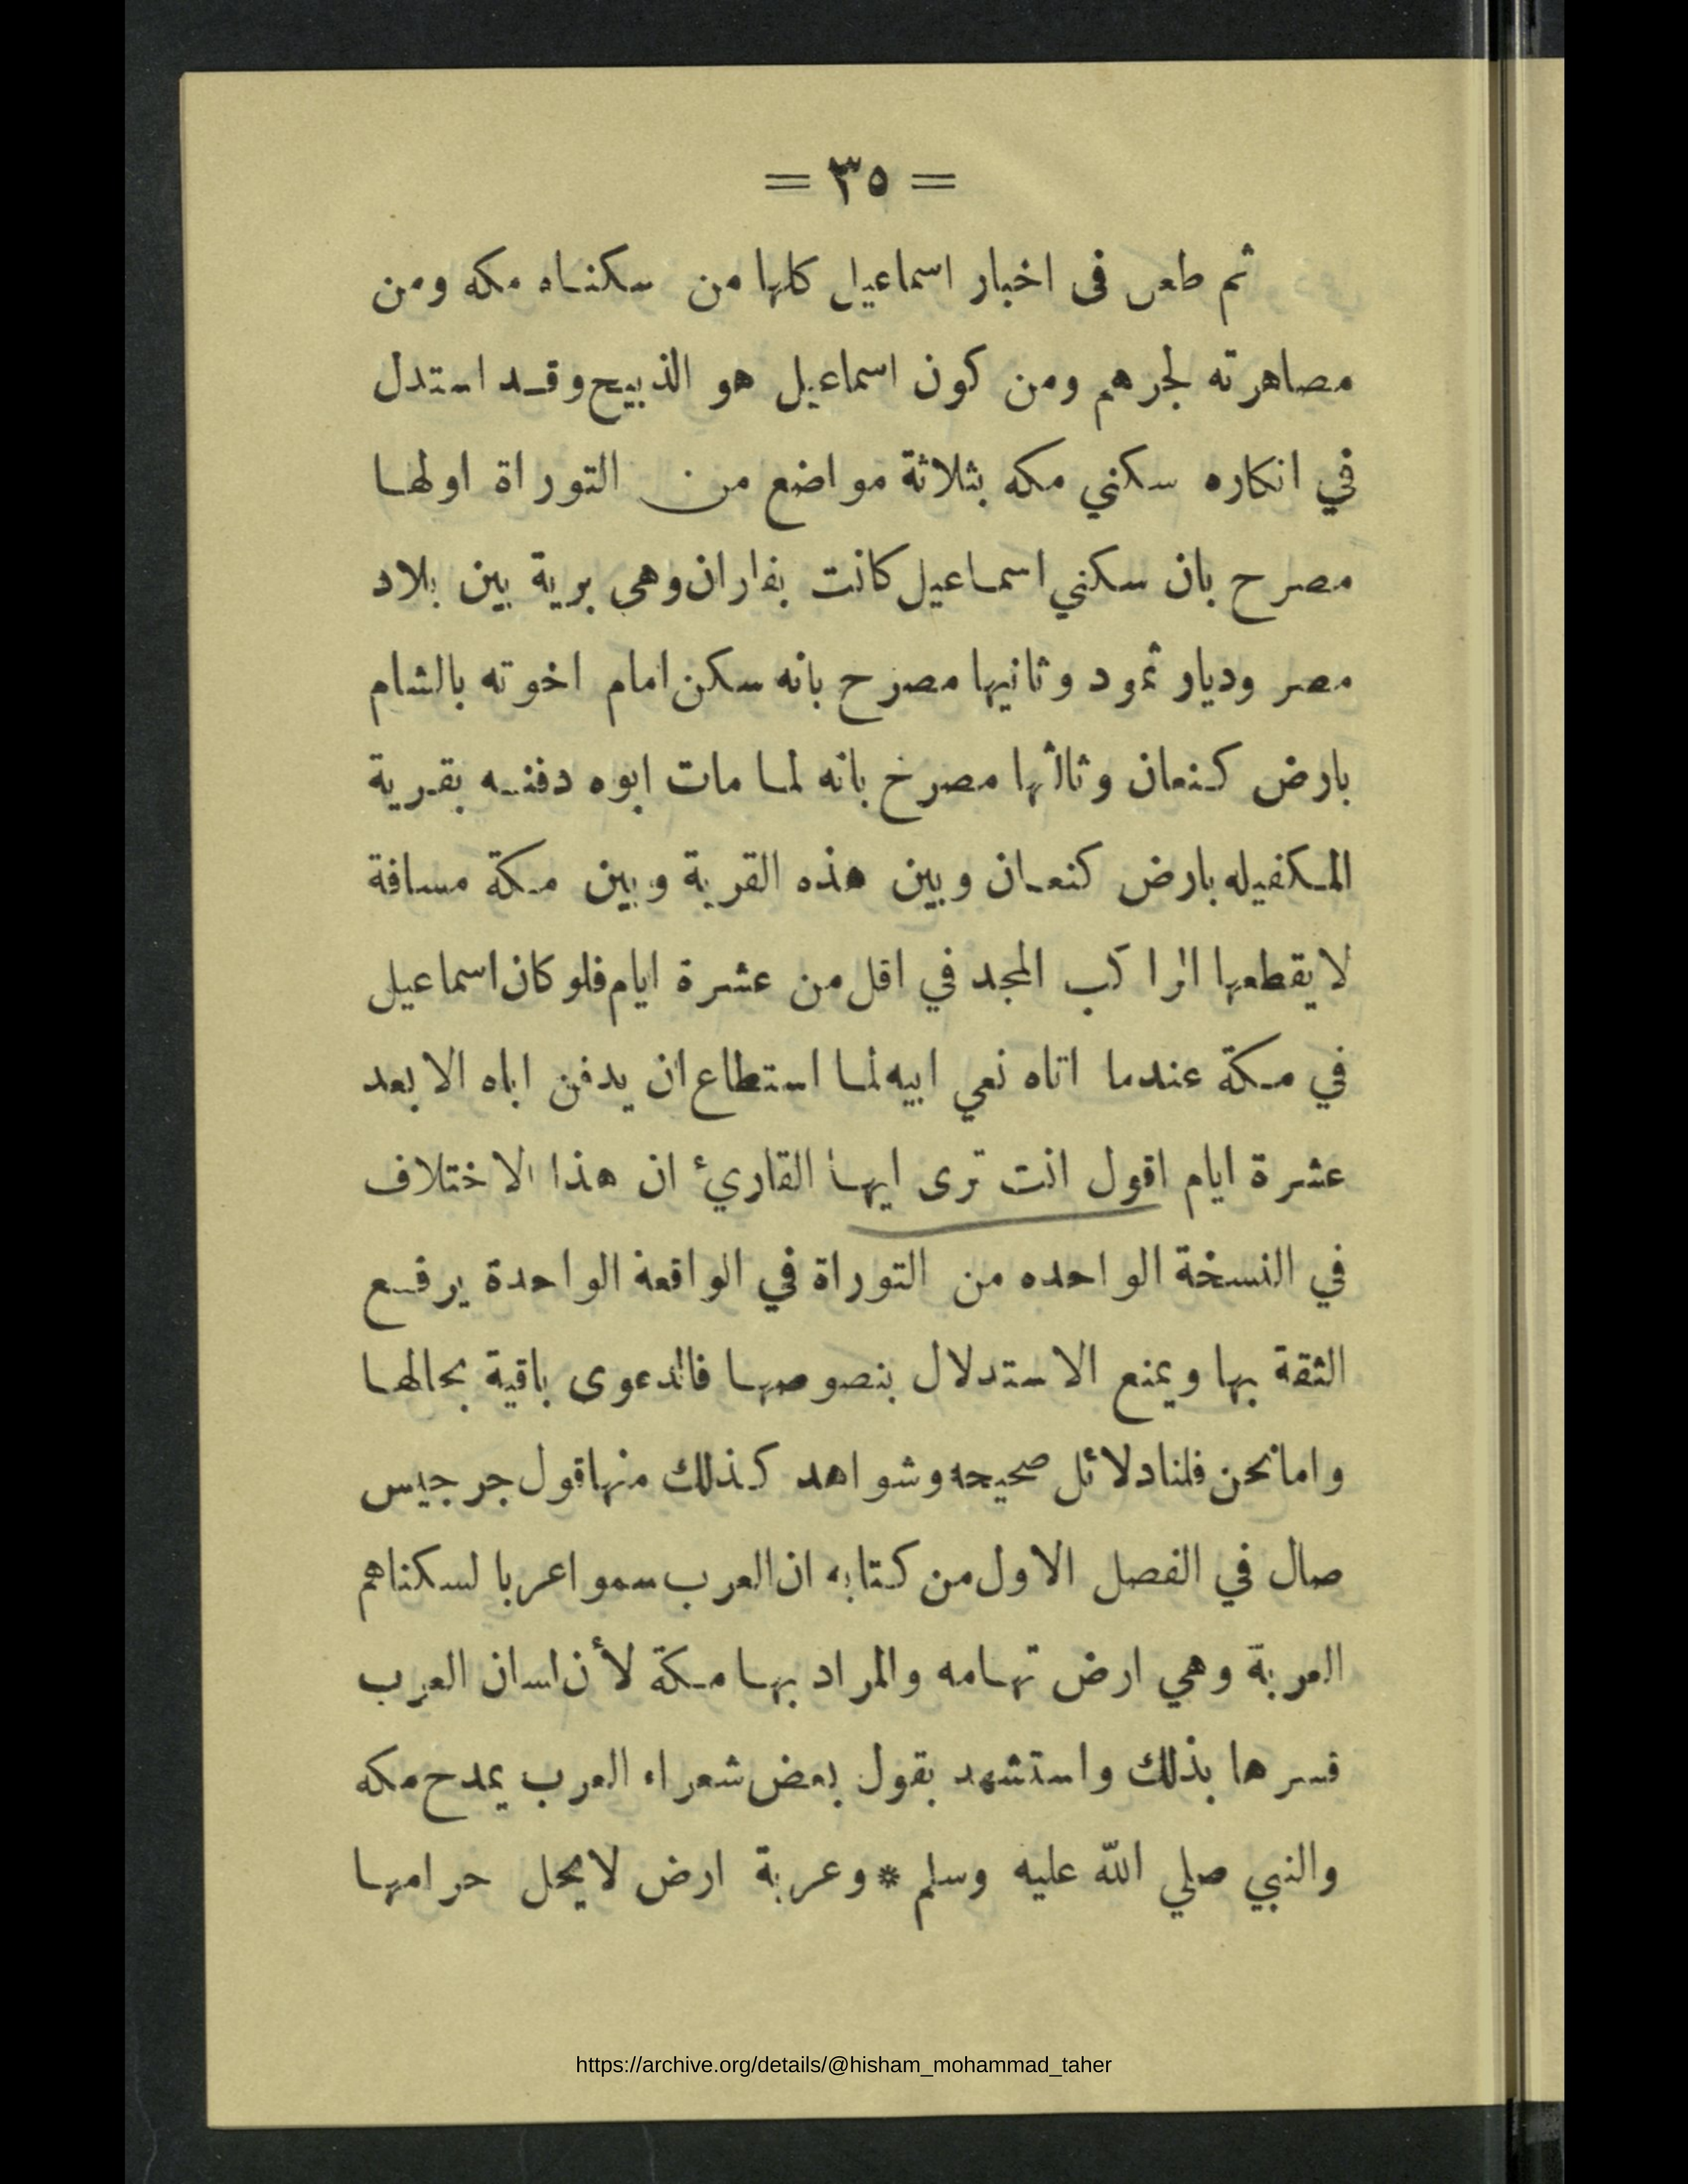 = ٣٥ =
ثم طعن فى اخبار اسماعيل كلها من سكناه مكه ومن
مصاهرته لجرهم ومن كون اسماعيل هو الذبيح وقد استدل
في انكاره سكني مكه بثلاثة مواضع من التوراة اولها
مصرح بان سكني اسماعيل كانت بفاران وهي برية بين بلاد
مصر وديار ثمود وثانيها مصرح بانه سكن امام اخوته بالشام
بارض كنعان وثالثها مصرخ بانه لما مات ابوه دفنه بقرية
المكفيله بارض كنعان وبين هذه القرية وبين مكة مسافة
لا يقطعها الراكب المجد في اقل من عشرة ايام فلو كان اسماعيل
في مكة عندما اتاه نعي ابيه لما استطاع ان يدفن اباه الا بعد
عشرة ايام اقول انت ترى ايها القاريء ان هذا الاختلاف
في النسخة الواحده من التوراة في الواقعة الواحدة يرفع
الثقة بها ويمنع الاستدلال بنصوصها فالدعوى باقية بحالها
واما نحن فلنا دلائل صحيحه وشواهد كذلك منها قول جرجيس
صال في الفصل الاول من كتابه ان العرب سموا عربا لسكناهم
العربة وهي ارض تهامه والمراد بها مكة لأن لسان العرب
فسرها بذلك واستشهد بقول بعض شعراء العرب يمدح مكه
والنبي صلي الله عليه وسلم * وعربة ارض لا يحل حرامها
https://archive.org/details/@hisham_mohammad_taher